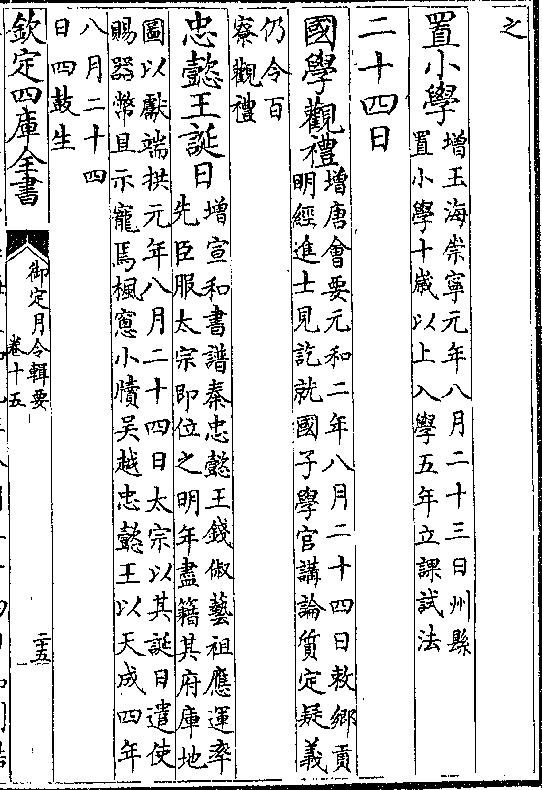 之
置小學增玉海崇寧元年八月二十三日州縣
置小學十歲以上入學五年立課試法
二十四日
國學觀禮增唐會要元和二年八月二十四日敕鄉貢
明經進士見訖就國子學官講論質定疑義
仍令百
寮觀禮
忠懿王誕日增宣和書譜秦忠懿王錢俶藝祖應運率
先臣服太宗即位之明年盡籍其府庫地
圖以獻端拱元年八月二十四日太宗以其誕日遣使
賜器幣且示寵焉楓窻小牘吳越忠懿王以天成四年
八月二十四
日四鼓生
欽定四庫全書
御定月令輯要
卷十五
二五